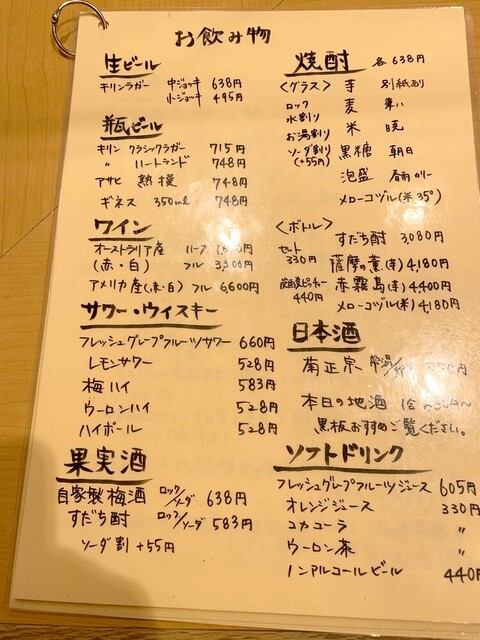 お飲み物
生ビール
キリンラガー 中ジョッキ 638円
小ジョッキ 495円
瓶ビール
キリン クラシックラガー 715円
〃 ハートランド 748円
アサヒ 熟撰 748円
ギネス 350ml 748円
ワイン
オーストラリア産 ハーフ
(赤・白) フル
アメリカ産(赤・白) フル 6,600円
サワー・ウイスキー
フレッシュグレープフルーツサワー 660円
レモンサワー 528円
梅ハイ 583円
ウーロンハイ 528円
ハイボール 528円
果実酒
自家製梅酒 ロック/ソーダ 638円
すだち酎 ロック/ソーダ 583円
ソーダ割 +55円
焼酎 各638円
<グラス> 芋 別紙あり
ロック 麦
水割り
お湯割り 米 暁
ソーダ割り 黒糖 朝日
(+55円)
泡盛 春雨カリー
メローコヅル(米35°)
<ボトル>
セット すだち酎 3,080円
330円 薩摩の薫(芋) 4,180円
炭酸ピッチャー 赤霧島(芋) 4400円
440円 メローコヅル(米) 4,180円
日本酒
菊正宗 常温/
本日の地酒 1合
黒板おすすめご覧ください。
ソフトドリンク
フレッシュグレープフルーツジュース 605円
オレンジジュース 330円
コカコーラ 〃
ウーロン茶 〃
ノンアルコールビール 440円